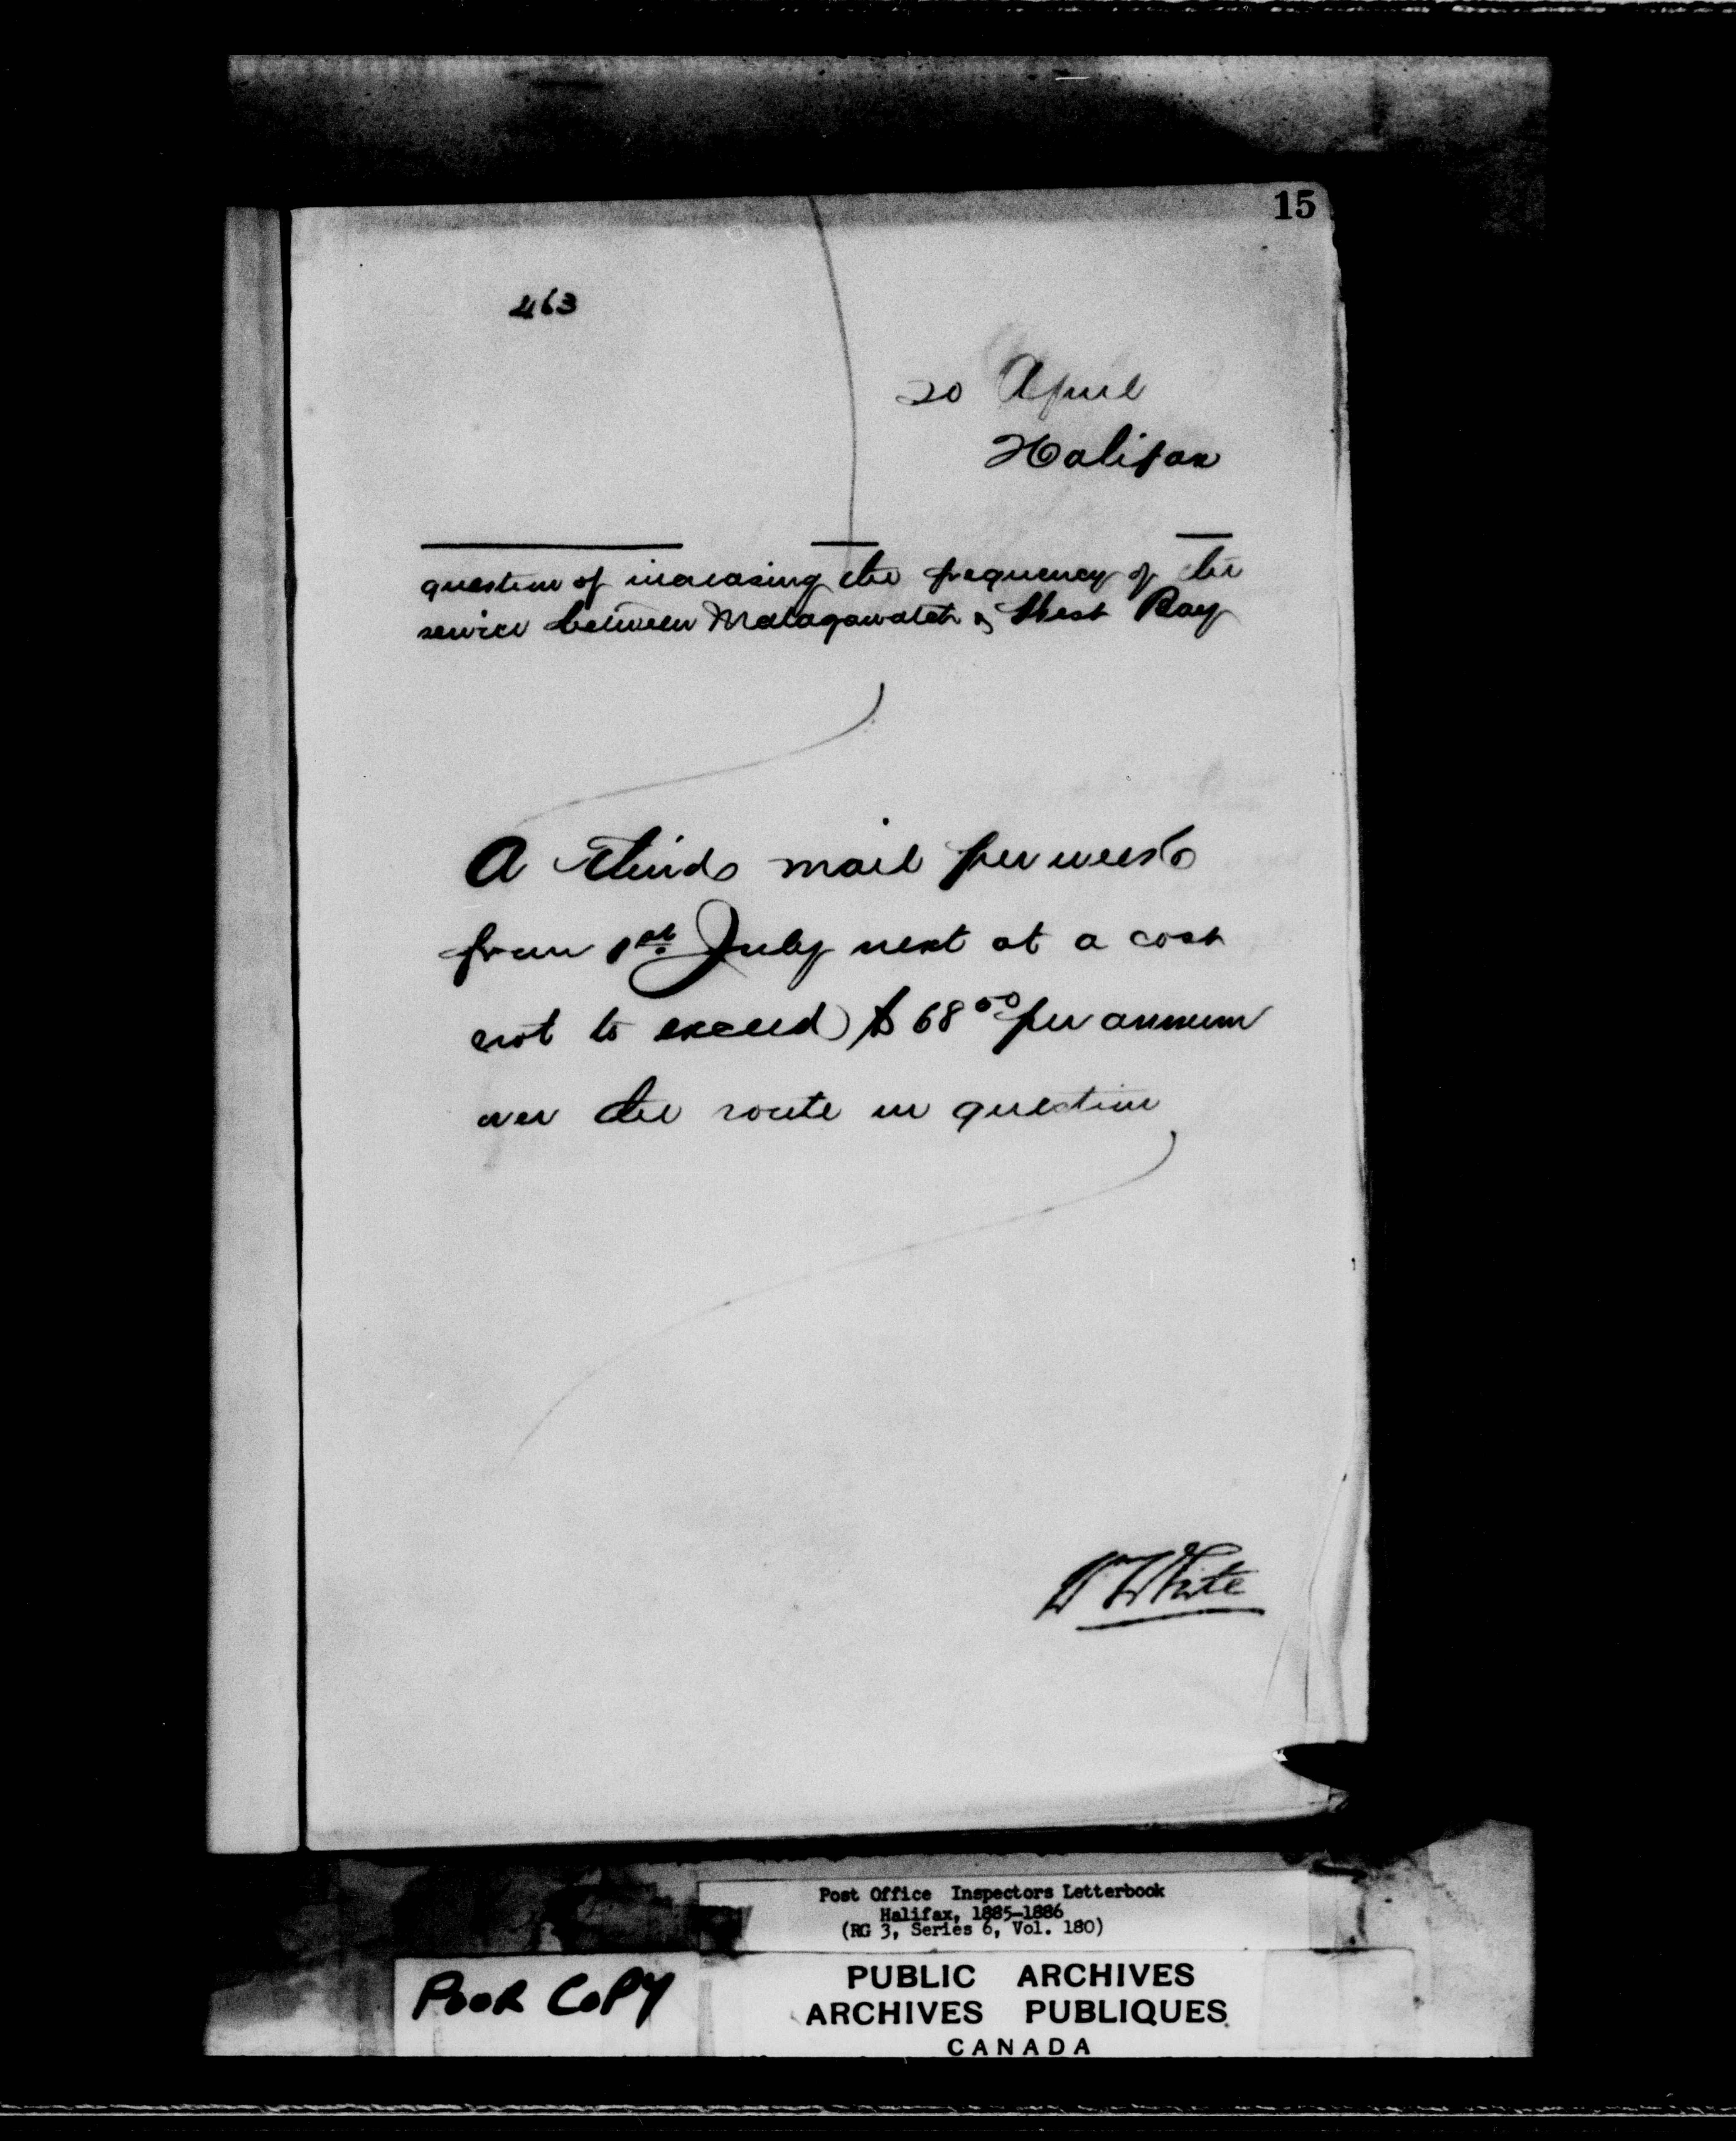 15
463
20 April
Halifax
question of increasing the frequency of the
service between Malagawatch & West Bay
A third mail per week
from 1st July next at a cost
not to exceed $68 00 per annum
over the route in question
W White
Post Office Inspectors Letterbook
Halifax, 1885-1886
(RG 3, Series 6, Vol. 180)
POOR COPY
PUBLIC ARCHIVES
ARCHIVES PUBLIQUES
CANADA